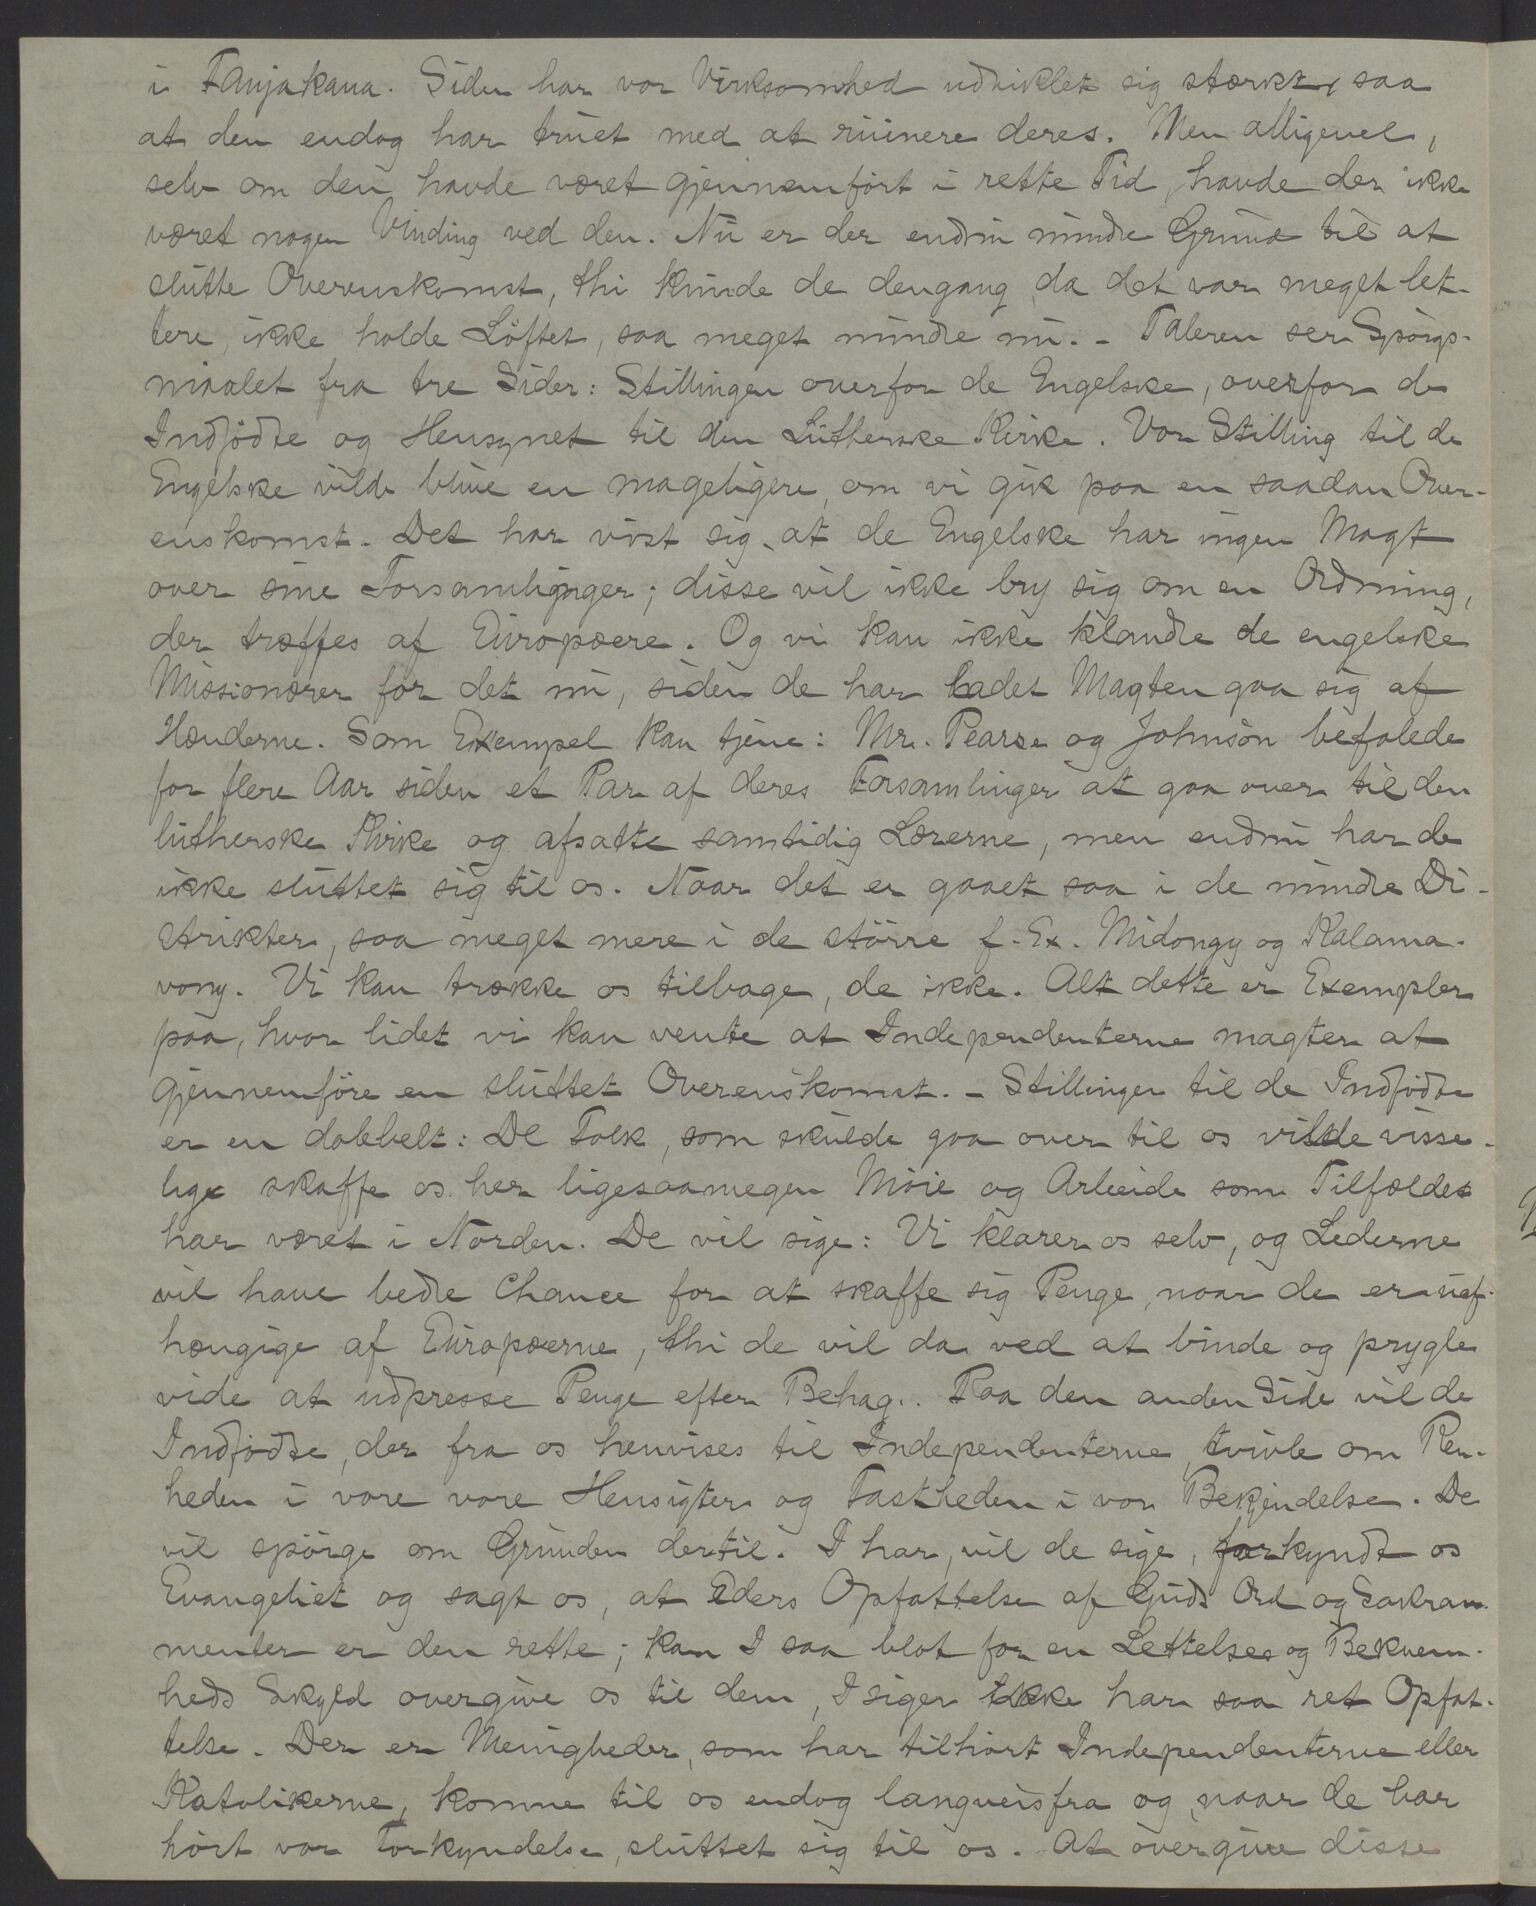 i Fanjakana. Siden har vor Virksomhed udviklet sig stærkt, saa
at den endog har truet med at ruinere deres. Men alligevel,
selv om den havde været gjennemført i rette Tid, havde der ikke
været nogen Vinding ved den. Nu er der endnu mindre Grund til at
slutte Overenskomst, thi kunde de dengang, da det var meget let-
tere, ikke holde Löftet, saa meget mindre nu. - Taleren ser Spörgs-
maalet fra tre Sider: Stillingen overfor de Engelske, overfor de
Indfödte og Hensynet til den Lutherske Kirke. Vor Stilling til de
Engelske vilde blive en mageligere, om vi gik paa en saadan Over-
enskomst. Det har vist sig, at de Engelske har ingen Magt
over sine Forsamlinger; disse vil ikke bry sig om en Ordning,
der træffes af Europæere. Og vi kan ikke klandre de engelske
Missionærer for det nu, siden de har ladet Magten gaa sig af
Hænderne. Som Exempel kan tjene: Mr. Pearse og Johnson befalede
for flere Aar siden et Par af deres Forsamlinger at gaa over til den
lutherske Kirke og afsatte samtidig Lærerne, men endnu har de
ikke sluttet sig til os. Naar det er gaaet saa i de mindre Di-
strikter, saa meget mere i de större f. Ex. Midongy og Kalama-
vony. Vi kan trække os tilbage, de ikke. Alt dette er Exempler
paa, hvor lidet vi kan vente at Independenterne magter at
gjennemföre en sluttet Overenskomst. - Stillingen til de Indfödte
er en dobbelt: De Folk, som skulde gaa over til os vilde visse-
lige skaffe os her ligesaamegen Möie og Arbeide som Tilfældet
har været i Norden. De vil sige: Vi klarer os selv, og Lederne
vil have bedre Chance for at skaffe sig Penge, naar de er uaf-
hængige af Europæerne, thi de vil da ved at binde og prygle
vide at udpresse Penge efter Behag. Paa den anden Side vil de
Indfödte, der fra os henvises til Independenterne, tvivle om Ren-
heden i vore vore Hensigter og Fastheden i vor Bekjendelse. De
vil spörge om Grunden dertil. I har, vil de sige, forkyndt os
Evangeliet og sagt os, at Eders Opfattelse af Guds Ord og Sakra-
menter er den rette; kan I saa blot for en Lettelses og Bekvem-
heds Skyld overgive os til dem, I siger ikke har saa ret Opfat-
telse. Der er Menigheder, som har tilhört Independenterne eller
Katolikerne, komne til os endog langveisfra og, naar de har
hört vor Forkyndelse, sluttet sig til os. At overgive disse